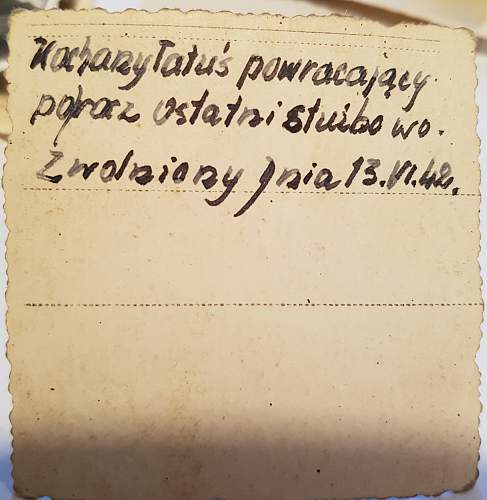 Kochany Tatuś powracający
poraz ostatni służbowo.
Zwolniony dnia 13.VI.42.